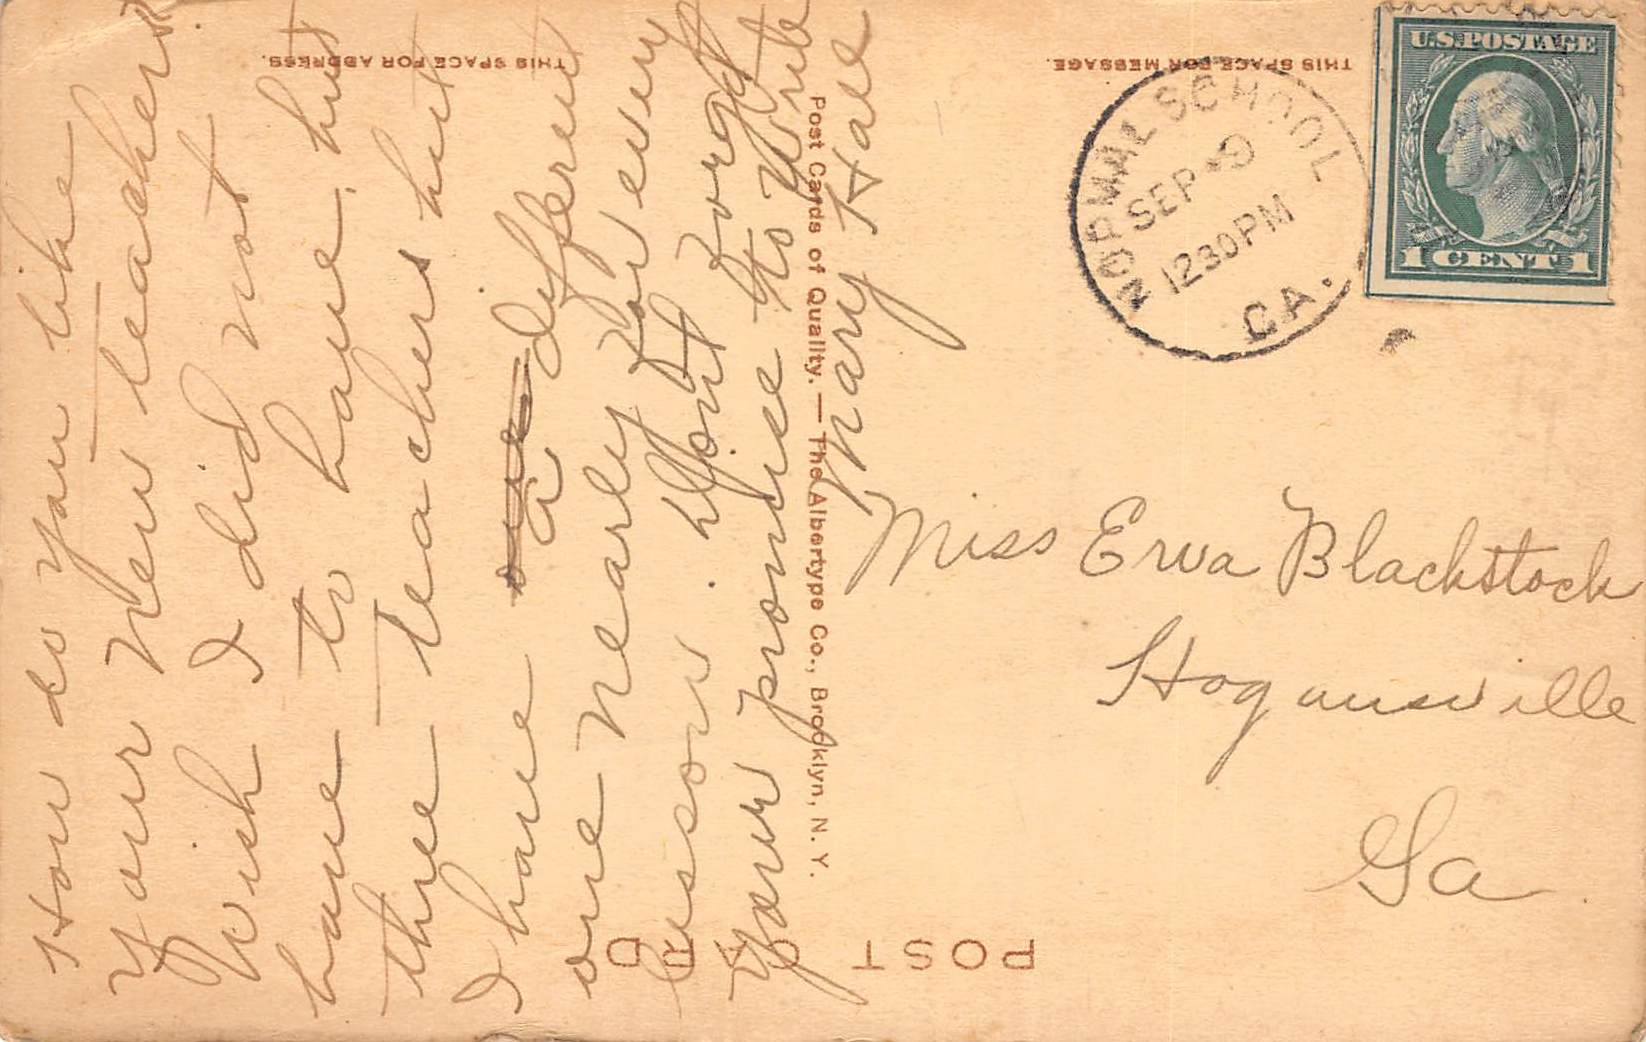 How do you like
your new teachers
Wish I did not
have to have but
three teachers but
I have a different
one nearly for every
lesson. Don't forget
your promise to write
Mary Hare
Miss Erva Blackstock
Hogansville
Ga
U.S. POSTAGE
1 CENT 1
NORMAL SCHOOL
SEP 9
1230PM
GA.
THIS SPACE FOR ADDRESS.
THIS SPACE FOR MESSAGE.
Post Cards of Quality. — The Albertype Co., Brooklyn, N. Y.
POST CARD